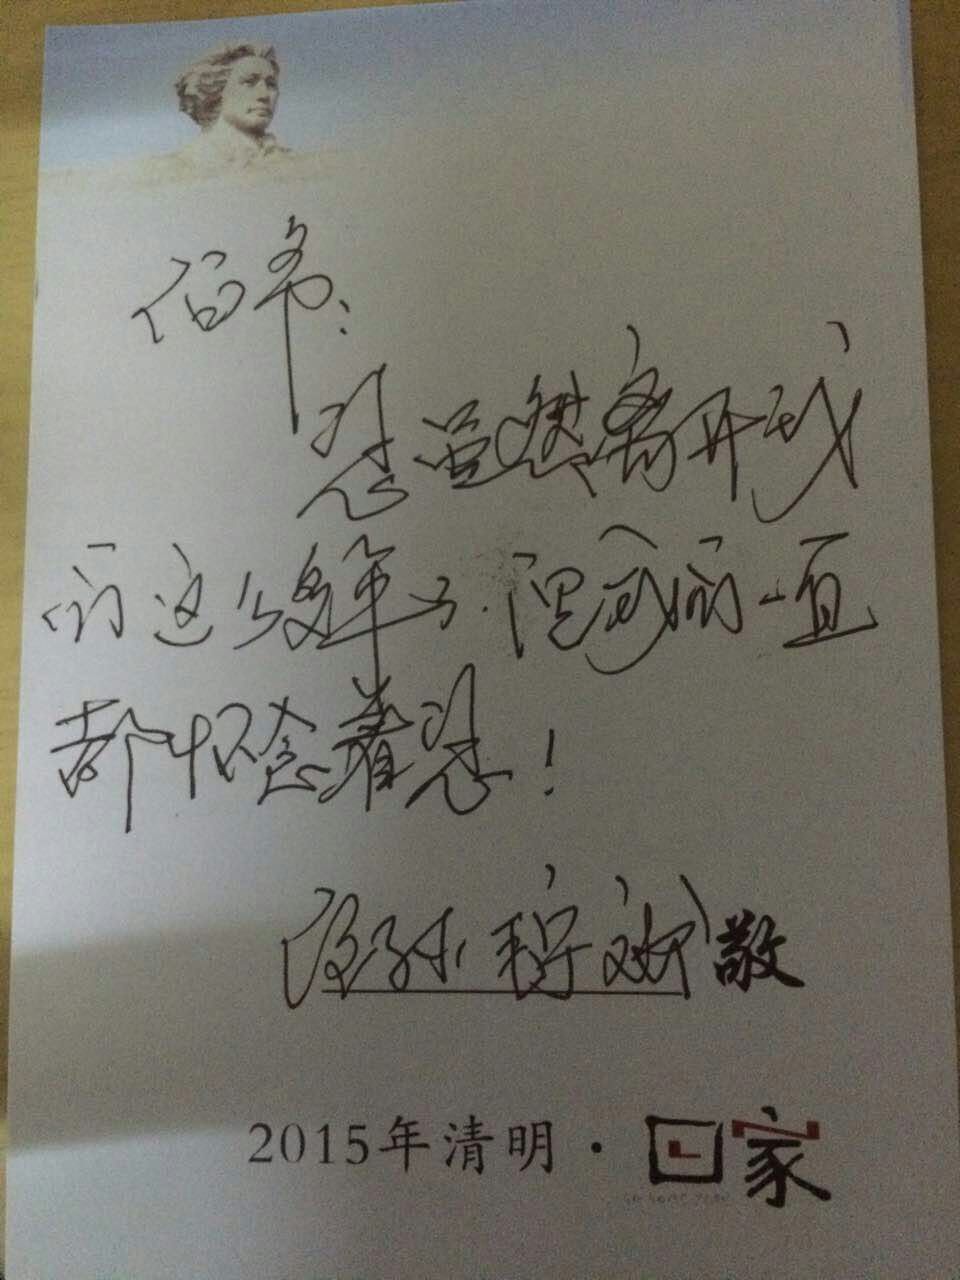 伯爷：
您虽然离开我
们这么多年了.但我们一直
都怀念着您！
段孙 敬
2015年清明·回家